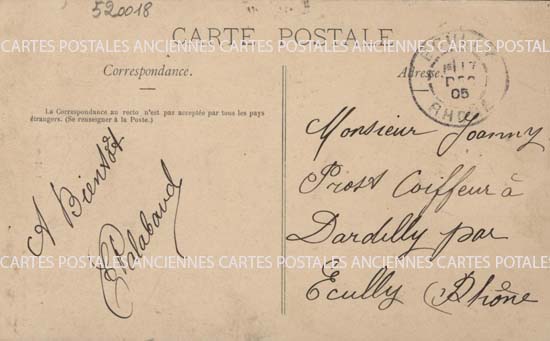 520018
CARTE POSTALE
CARTES POSTALES ANCIENNES CARTES POSTALES ANCIENNES CARTES POTALES
Correspondance.
Adresse.
17
DEC
05
RHONE
La Correspondance au recto n'est pas acceptée par tous les pays
étrangers. (Se renseigner à la Poste.)
A Bientôt
Monsieur Joanny
Prost Coiffeur à
Dardilly par
Ecully Rhône
CARTES POSTALES ANCIENNES CARTES POSTALES ANCIENNES CARTES POTALES